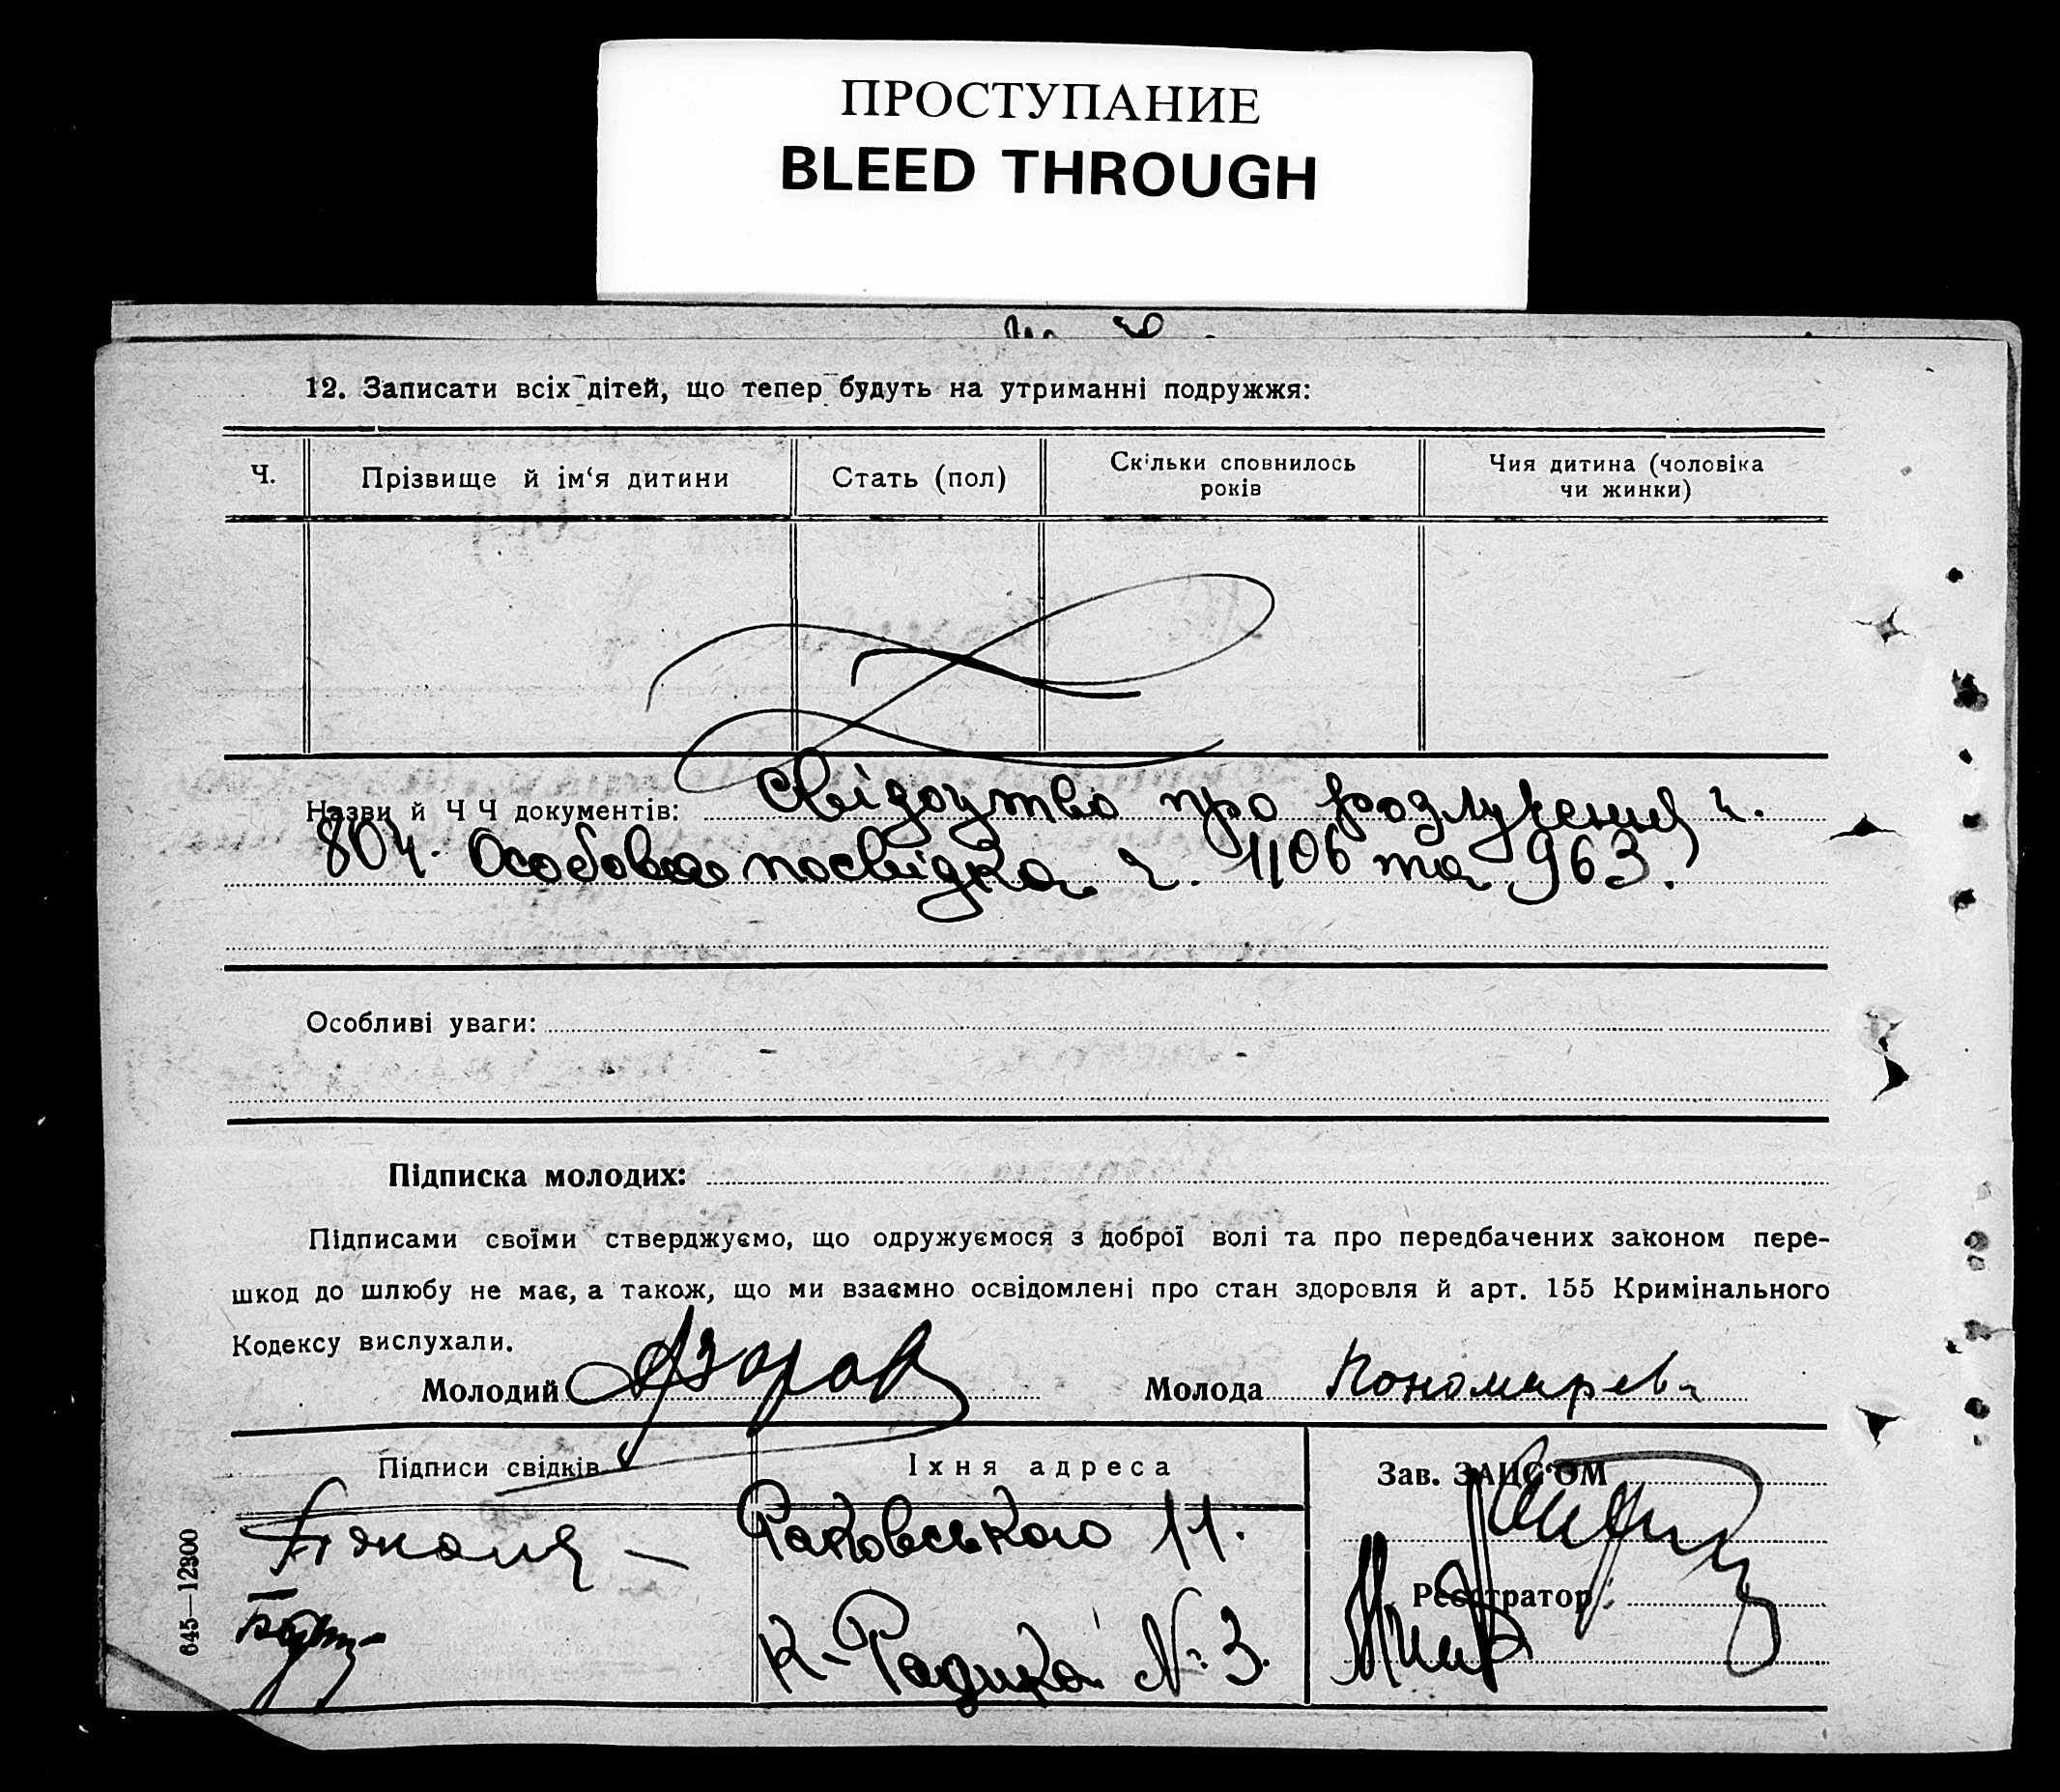 ПРОСТУПАНИЕ
BLEED THROUGH
12. Записати всіх дітей, що тепер будуть на утриманні подружжя:
Ч.
Прізвище й ім‘я дитини
Стать (пол)
Скільки сповнилось
років
Чия дитина (чоловіка
чи жинки)
Назви й Ч Ч документів: Свідоцтво про розлучення ч.
804. Особова посвідка ч. 1106 та 963.
Особливі уваги:
Підписка молодих:
Підписами своїми стверджуємо, що одружуємося з доброї волі та про передбачених законом пере-
шкод до шлюбу не має, а також, що ми взаємно освідомлені про стан здоровля й арт. 155 Кримінального
Кодексу вислухали.
Молодий
Молода Пономарева
Підписи свідків
Їхня адреса
Зав. ЗАГС'ОМ
Раковського 11.
Реєстратор
К-Радика № 3.
645—12300